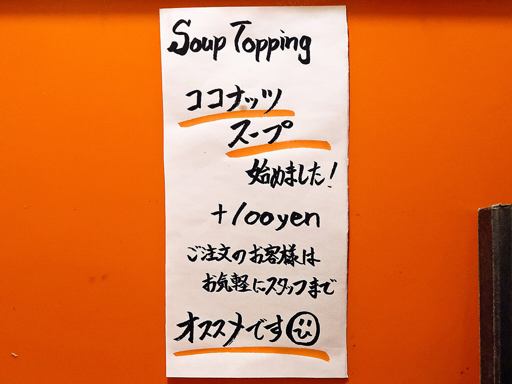 Soup Topping
ココナッツ
スープ
始めました!
+100yen
ご注文のお客様は
お気軽にスタッフまで
オススメです